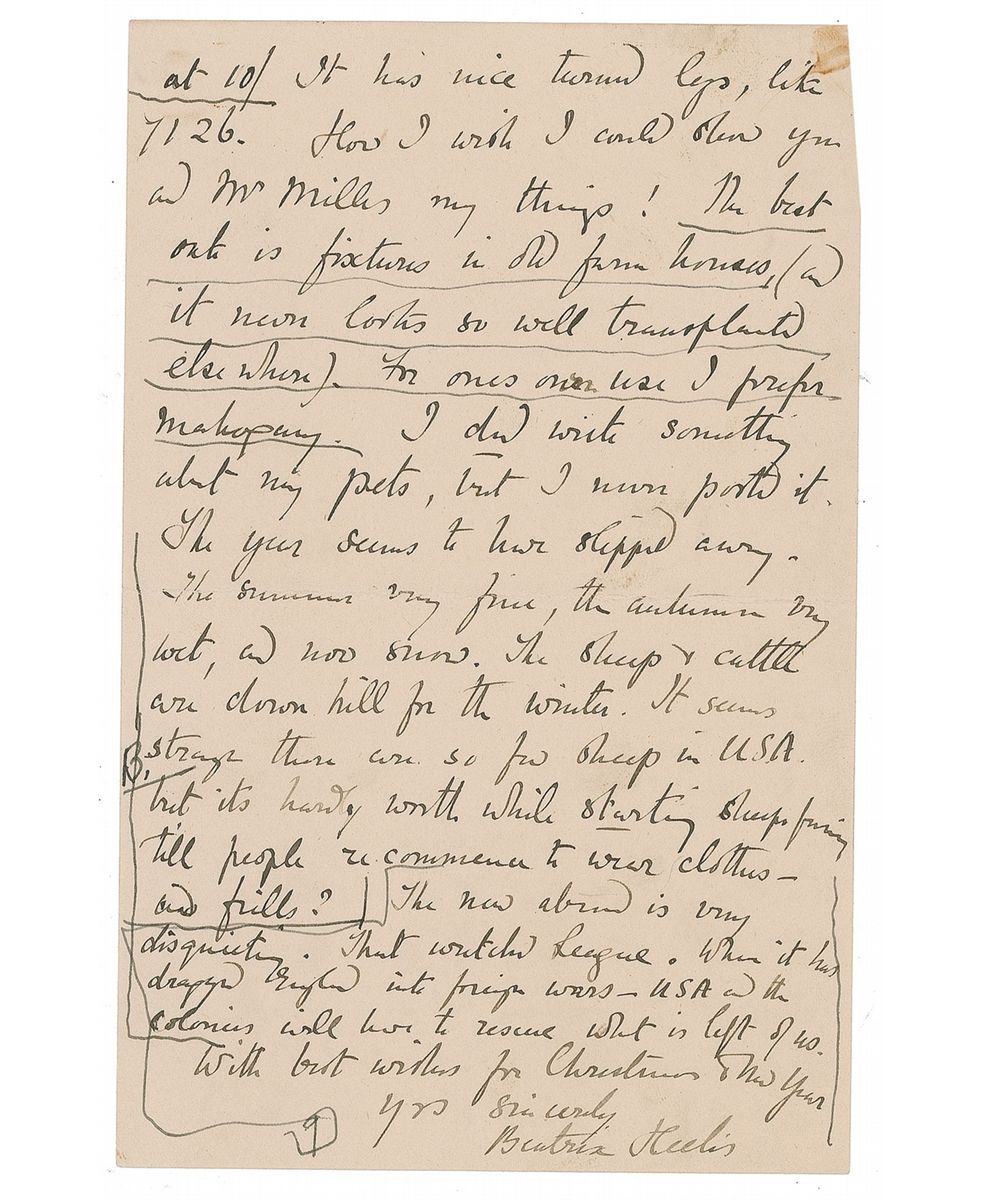 at 10/ It has nice turned legs, like
7126. How I wish I could show you
and Mr Miller my things! The best
oak is fixtures in old farm houses, (and
it never looks so well transplanted
elsewhere). For ones own use I prefer
mahogany. I did write something
about my pets, but I never posted it.
The year seems to have slipped away.
The summer very fine, the autumn very
wet, and now snow. The sheep & cattle
are down hill for the winter. It seems
B, strange there are so few sheep in USA.
but its hardly worth while starting sheep farming
till people recommence to wear clothes —
and frills? The news abroad is very
disquieting. That wretched League. When it has
dragged England into foreign wars — USA and the
colonies will have to rescue what is left of us.
With best wishes for Christmas & New Year
yrs sincerely
Beatrix Heelis
9